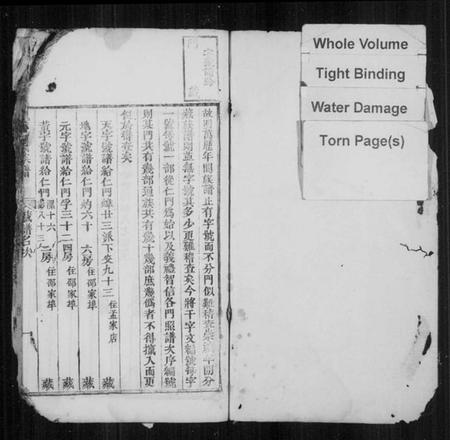 故明萬曆年間族譜止有字號而不分門似難稽查崇
藏族譜則並無字號其多少更難稽查矣今將千字文編號每字
一號每號一部從仁門為始以及義禮智信各門照譜次序編號
則某門共有幾部通族共有幾十幾部庶幾偽者不得攙入而更
便於稽查矣
天字號譜給仁門 廿三派下安九十三 住孟家店 藏
地字號譜給仁門 約六十 六房 住邵家埠 藏
元字號譜給仁門 孚三十二 四房 住邵家埠 藏
黃字號譜給仁門 十六 八十三 二房 住邵家埠 藏
Whole Volume
Tight Binding
Water Damage
Torn Page(s)